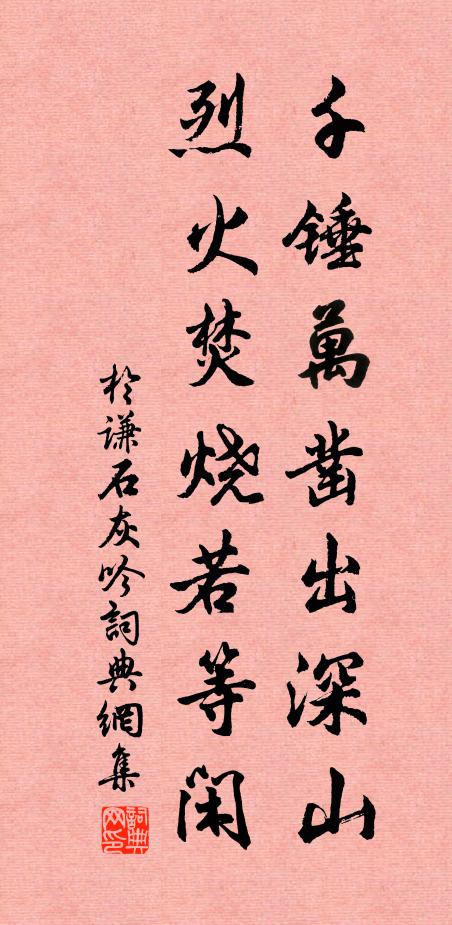 千錘萬鑿出深山
烈火焚烧若等閑
於谦石灰吟詞典網集
詞典网印